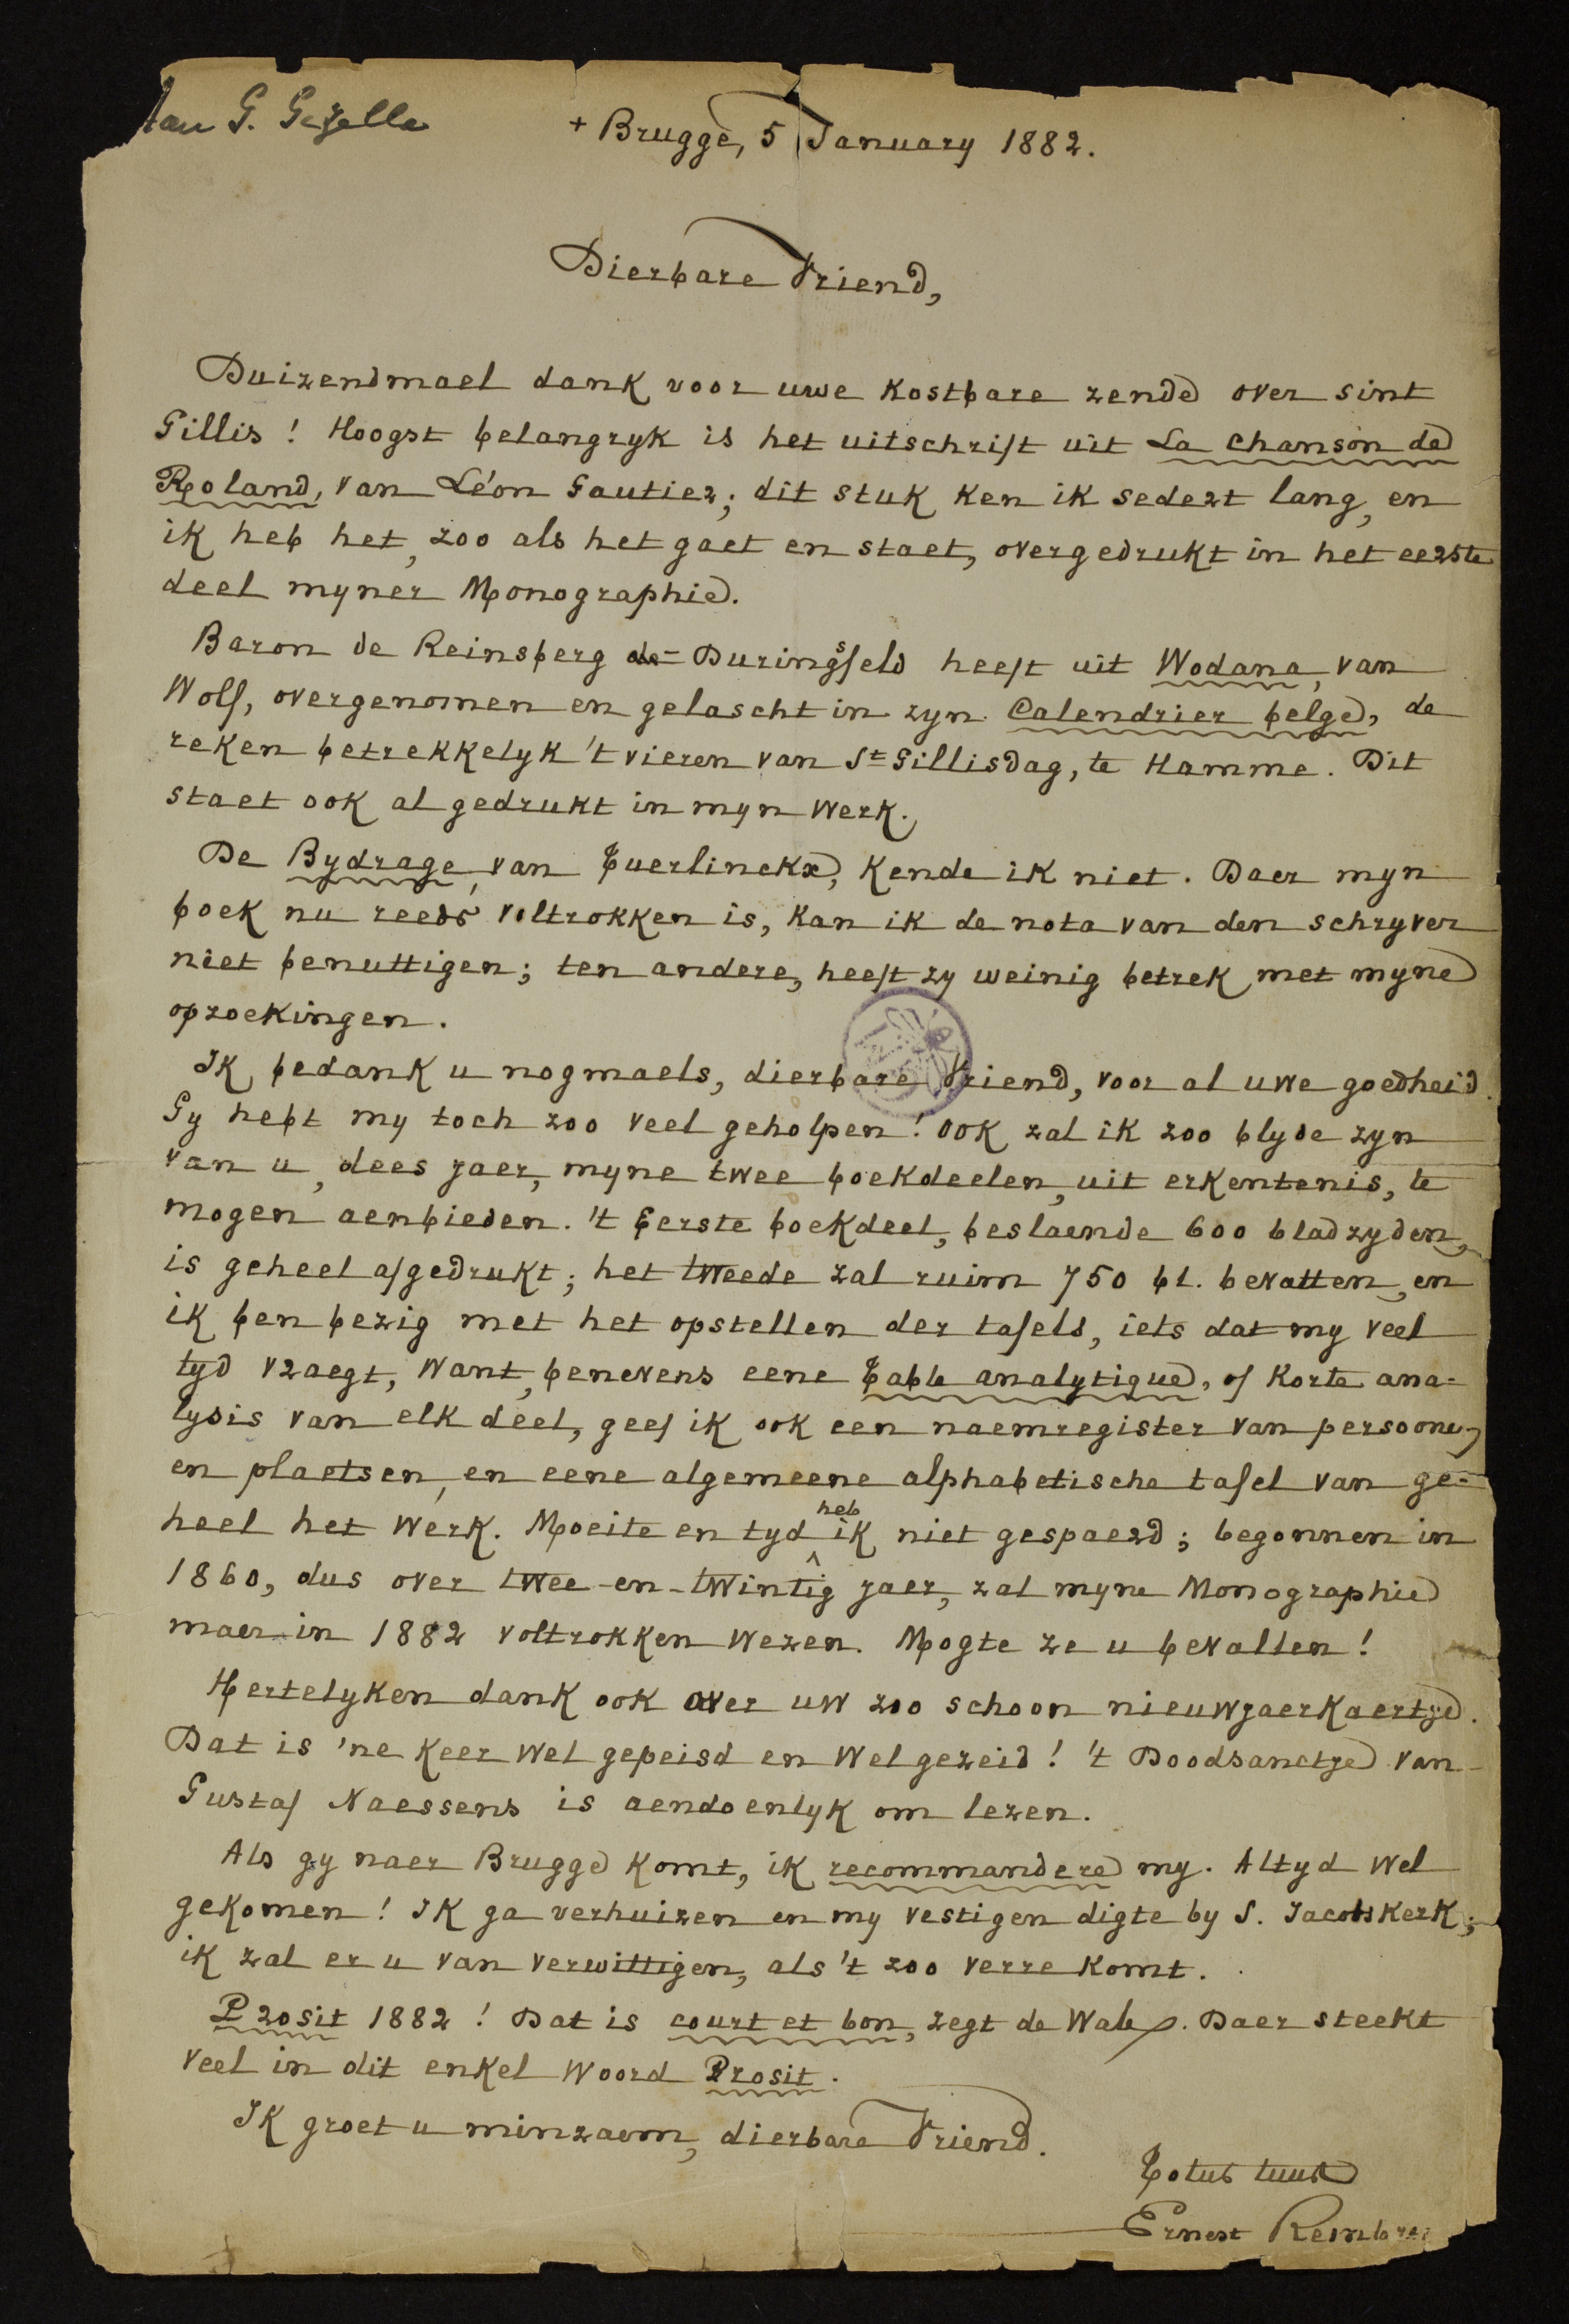 Aan G. Gezelle
+ Brugge, 5 January 1882.
Dierbare Vriend,
Duizendmael dank voor uwe kostbare zende over sint
Gillis! Hoogst belangryk is het uitschrift uit La chanson de
Roland, van Léon Gautier; dit stuk ken ik sedert lang, en
ik heb het, zoo als het gaet en staet, overgedrukt in het eerste
deel myner Monographie.
Baron de Reinsberg-Duringsfeld heeft uit Wodana, van
Wolf, overgenomen en gelascht in zyn Calendrier belge, de
reken betrekkelyk 't vieren van St Gillisdag, te Hamme. Dit
staet ook al gedrukt in myn werk.
De Bydrage, van Tuerlinckx, kende ik niet. Daer myn
boek nu reeds voltrokken is, kan ik de nota van den schryver
niet benuttigen; ten andere, heeft zy weinig betrek met myne
opzoekingen.
Ik bedank u nogmaels, dierbare Vriend, voor al uwe goedheid.
Gy hebt my toch zoo veel geholpen! Ook zal ik zoo blyde zyn
van u, dees jaer, myne twee boekdeelen, uit erkentenis, te
mogen aenbieden. 't Eerste boekdeel, beslaende 600 bladzyden,
is geheel afgedrukt; het tweede zal ruim 750 bl. bevatten, en
ik ben bezig met het opstellen der tafels, iets dat my veel
tyd vraegt, want, benevens eene Table analytique, of korte ana=
lysis van elk deel, geef ik ook een naemregister van persoonen
en plaetsen, en eene algemeene alphabetische tafel van ge=
heel het werk. Moeite en tyd heb ik niet gespaerd; begonnen in
1860, dus over twee-en-twintig jaer, zal myne Monographie
maer in 1882 voltrokken wezen. Mogte ze u bevallen!
Hertelyken dank ook over uw zoo schoon nieuwjaerkaertje.
Dat is 'ne keer wel gepeisd en wel gezeid! 't Doodsanctje van
Gustaf Naessens is aendoenlyk om lezen.
Als gy naer Brugge komt, ik recommandere my. Altyd wel
gekomen! Ik ga verhuizen en my vestigen digte by S. Jacobskerk;
ik zal er u van verwittigen, als 't zoo verre komt.
Prosit 1882! Dat is court et bon, zegt de Wale. Daer steekt
veel in dit enkel woord Prosit.
Ik groet u minzaem, dierbare Vriend.
Totus tuus
Ernest Rembry